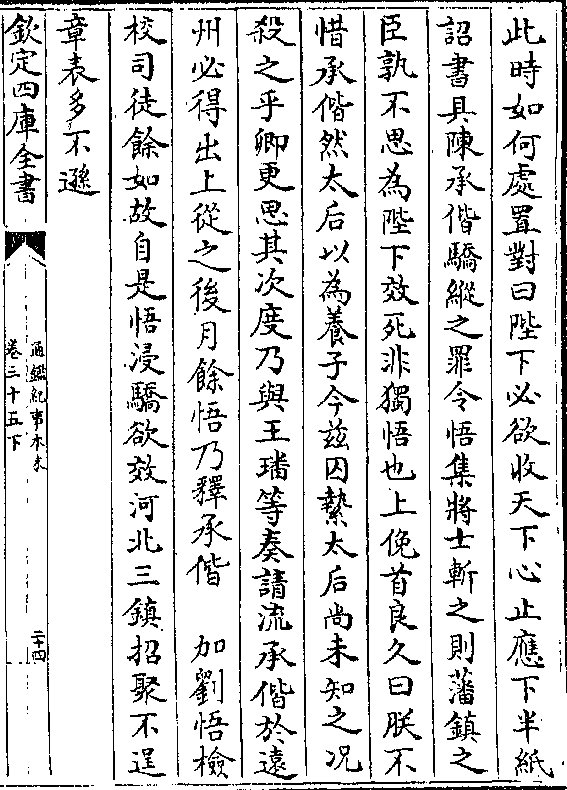 此時如何處置對曰陛下必欲收天下心止應下半紙
詔書具陳承偕驕縱之罪令悟集將士斬之則藩鎮之
臣孰不思為陛下效死非獨悟也上俛首良久曰朕不
惜承偕然太后以為養子今兹囚縶太后尚未知之况
殺之乎卿更思其次度乃與王璠等奏請流承偕於遠
州必得出上從之後月餘悟乃釋承偕　加劉悟檢
校司徒餘如故自是悟浸驕欲效河北三鎮招聚不逞
章表多不遜
欽定四庫全書
通鑑紀事本末
卷三十五下
二十四